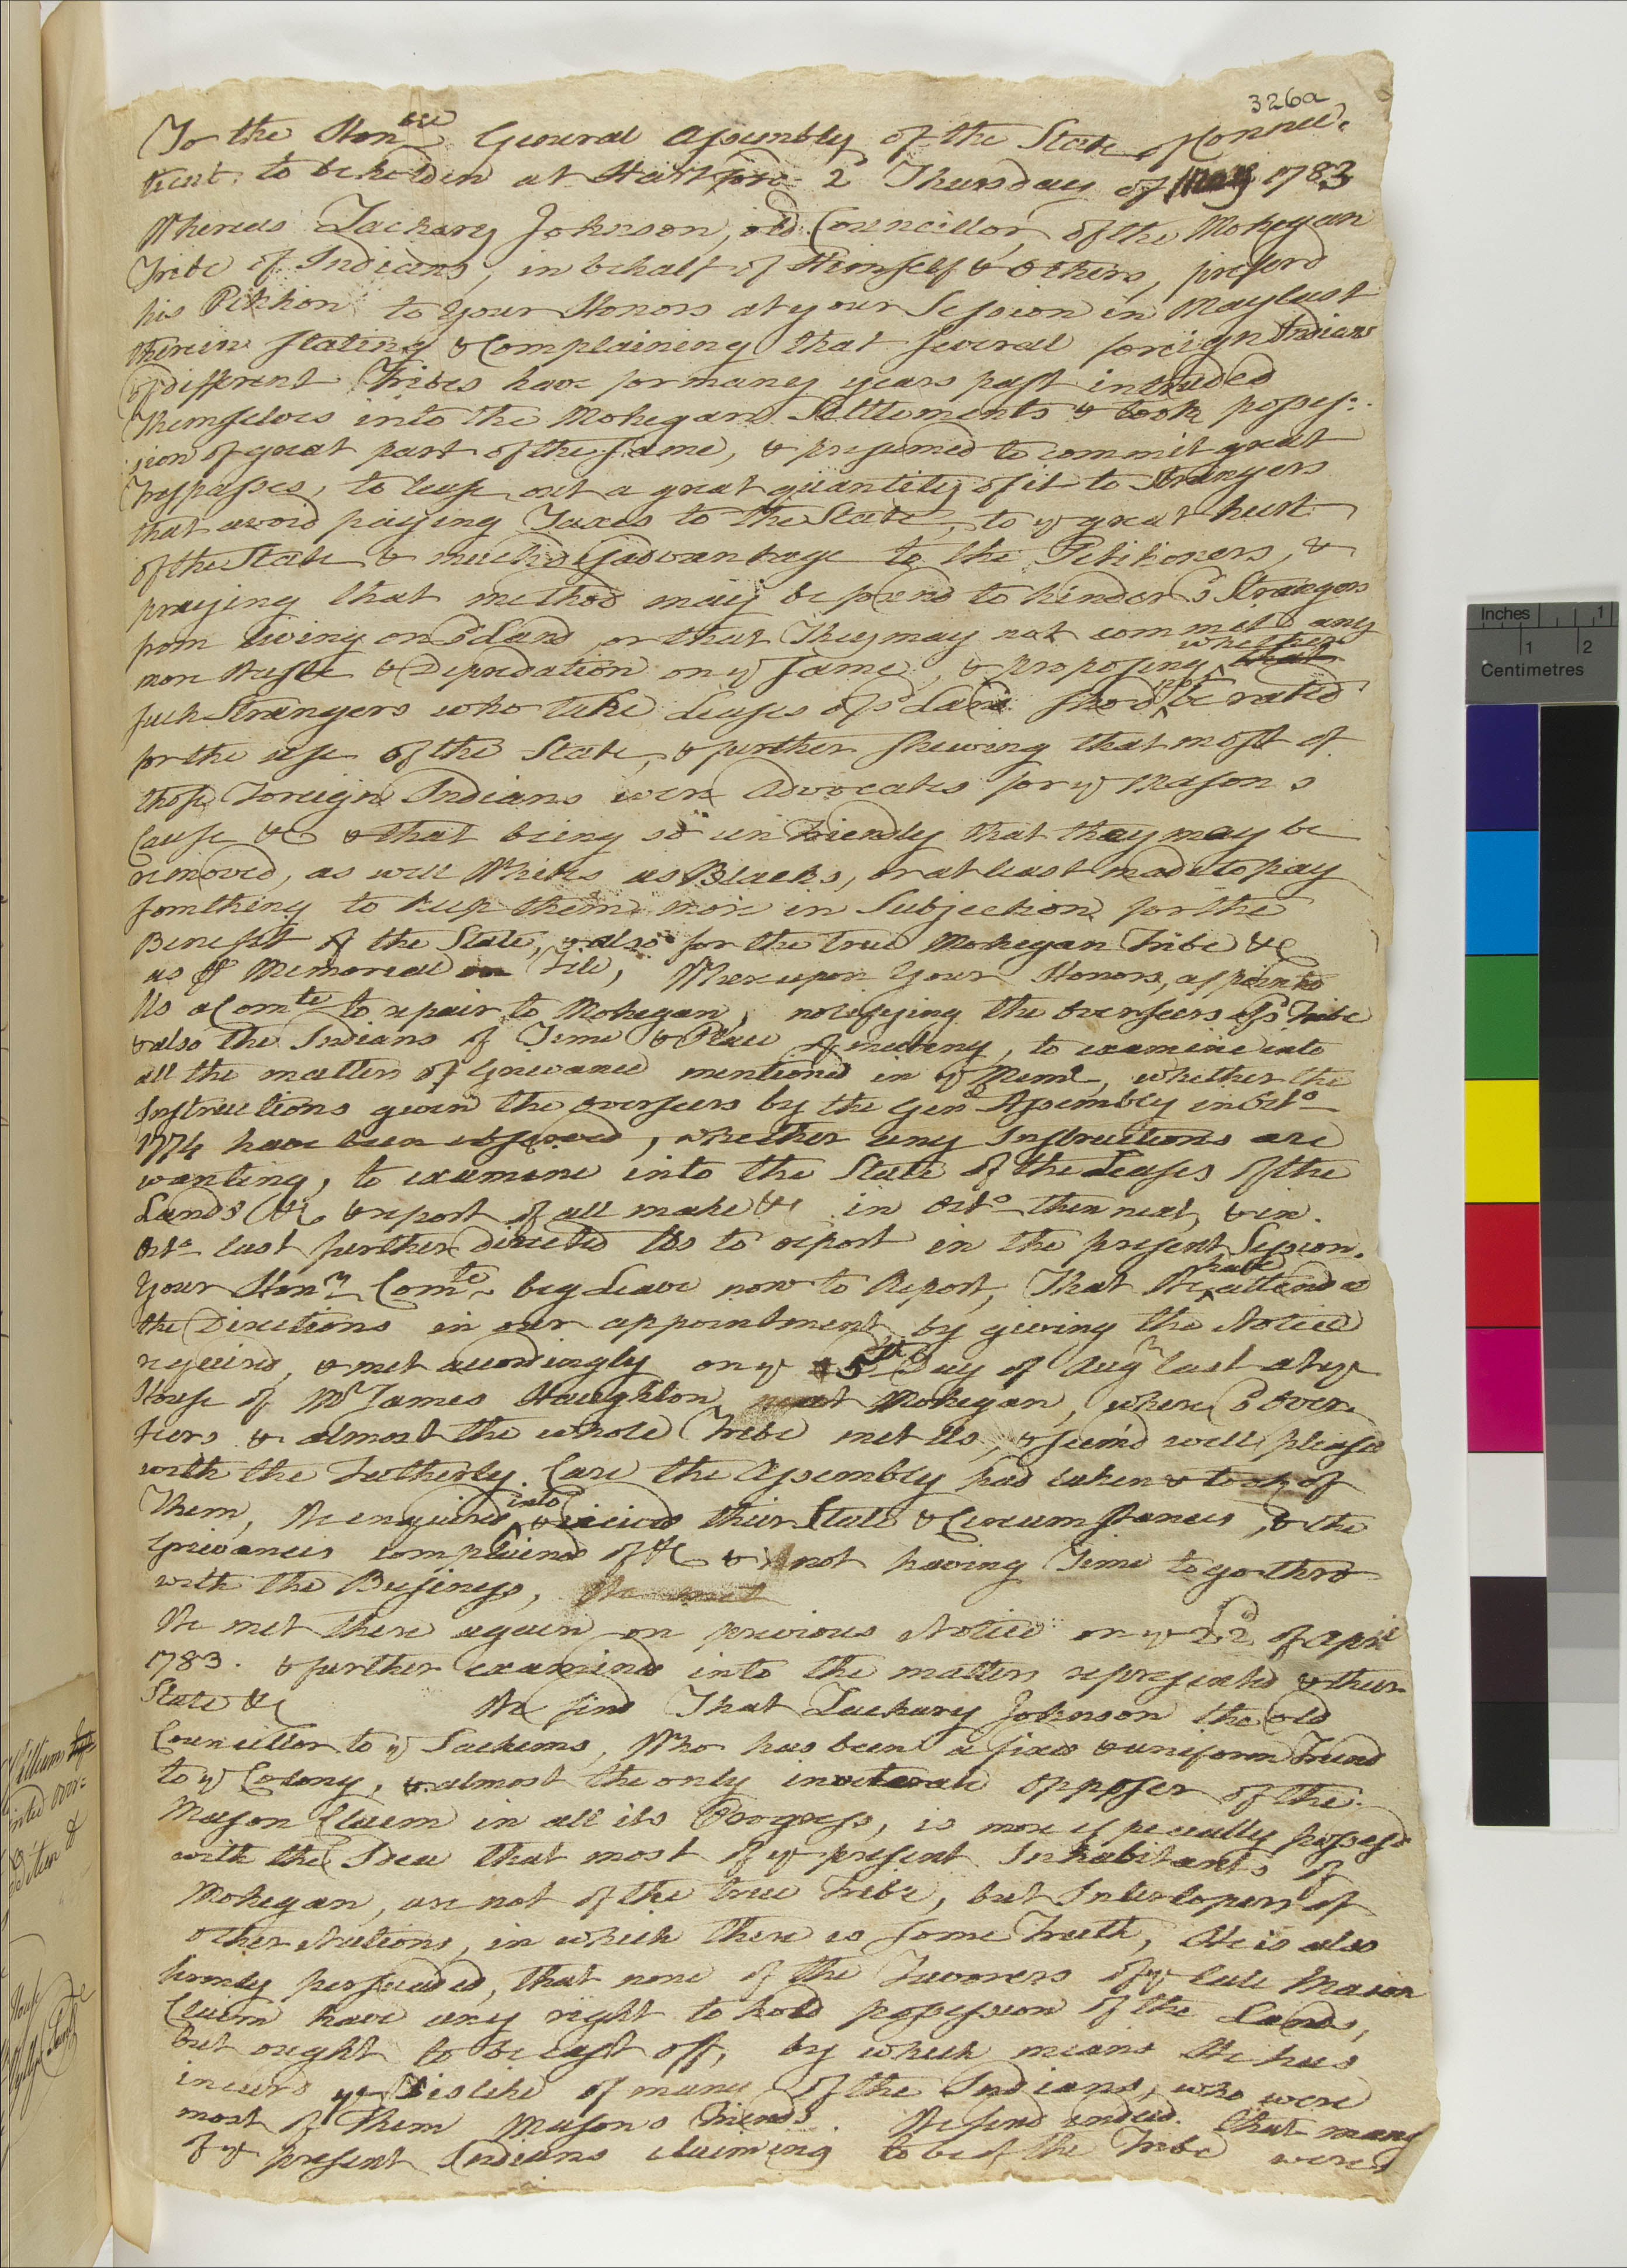 326a
To the Honble General Assembly of the State of Connec-
ticut, to be holden at Hartford 2d Thursday of May 1783
Whereas Zachary Johnson, old Councillor, of the Mohegan
Tribe of Indians, in behalf of Himself & Others, preferd
his Petition to Your Honors at your Session in May last
therein stating & Complaining that several foreign Indians
of different Tribes have for many years past intruded
Themselves into the Mohegan Settlements & took posses-
sion of great part of the same, & presumed to commit great
Trespasses, to lease out a great quantity of it to Strangers
that avoid paying Taxes to the State, to ye great hurt
of the State & much disadvantage to the Petitioners, &
praying that method may be found to hinder sd Strangers
from living on sd Land or that They may not commit any
more Waste & Depredation on ye same, & proposing whether that
such Strangers who take Leases of sd Land shod not be rated
for the use of the State, & further shewing that most of
those Foreign Indians were Advocates for ye Masons
Cause &c & that being so unfriendly that thay may be
removed, as well Whites as Blacks, or at least made to pay
somthing to keep them more in Subjection for the
Benefit of the State, & also for the true Mohegan Tribe &c
as pr Memorial on File, Whereupon Your Honors, appointed
Us a Comte to repair to Mohegan, notefying the Overseers of sd Tribe
& also the Indians of Time & Place of meeting, to examine into
all the matters of Grievance mentioned in ye Meml, whether the
Instructions given the Overseers by the Genl Assembly in Octo
1774 have been observed, whether any Instructions are
wanting, to examine into the State of the Leases of the
Lands &c & report of all make &c in Octo then next, & in
Octo last further directed Us to report in the present Session.
Your Honrs Comte beg Leave now to Report, That We have attended
the Directions in our appointment, by giving the Notice
required, & met accordingly on ye 5th Day of Augt last at ye
House of Mr James Haughton, at Mohegan, where sd Over-
seers & almost the whole Tribe met Us, & seem'd well pleased
with the Fatherly Care the Assembly had taken & took of
Them, We enquired into & viewed their State & Circumstances, & the
Grievances complained of &c & not having Time to go thro
with the Business, We met
We met there again on previous Notice on ye 22d of Apri
1783. & further examined into the matters represented & their
State &c We find That Zachary Johnson the old
Councillor to ye Sachems, Who has been a fixed & uniform Friend
to ye Colony, & almost the only inveterate opposer of the
Mason Claim in all its Progress, is more especially possessd
with the Idea that most of ye present Inhabitants of
Mohegan, are not of the true Tribe, but Interlopers of
other Nations, in which there is some Truth, He is also
firmly persuaded, that none of the Favorers of ye late Mason
Claim have any right to hold possession of the Lands,
but ought to be cast off, by which means He has
incurd ye Dislike of many of the Indians, who were
most of them Masons Friends. We find indeed that many
of ye present Indians claiming to be of the Tribe were
William